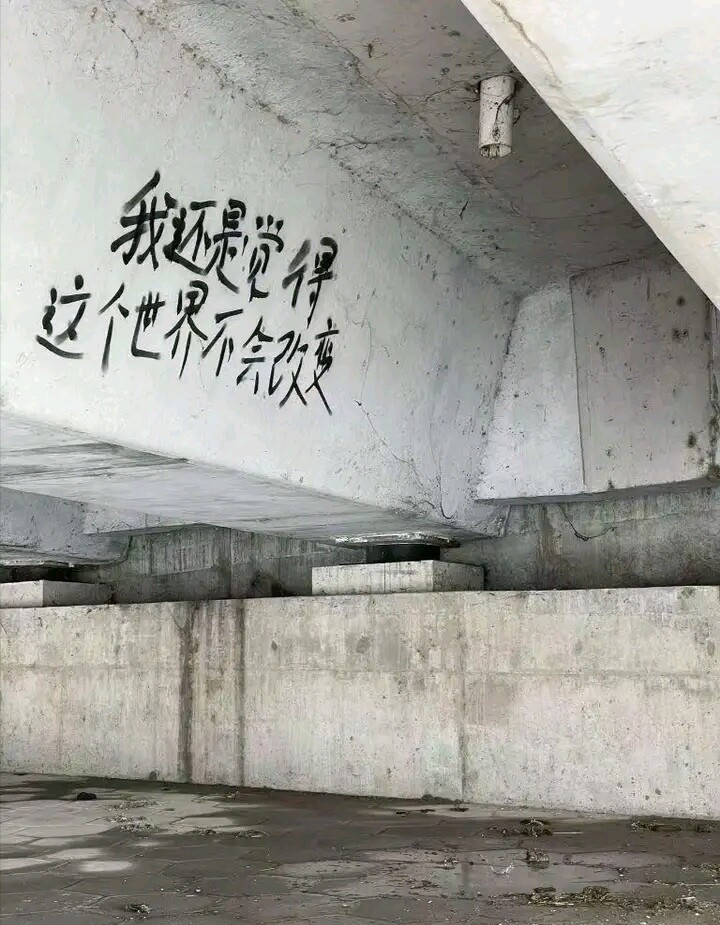 我还是觉得
这个世界不会改变